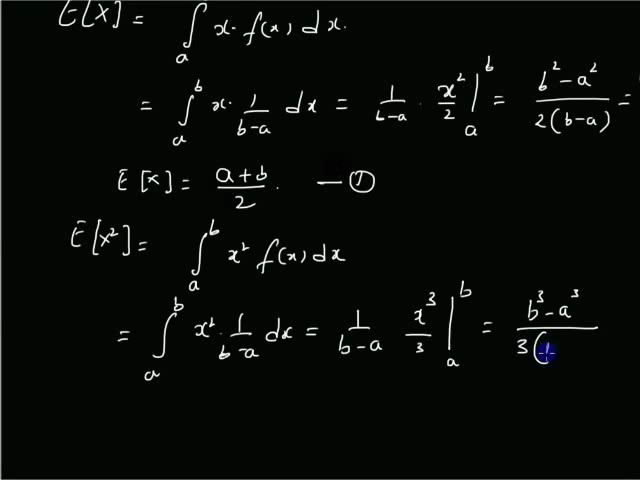 E[X] = ∫ₐ x · f(x) dx.
= ∫ₐᵇ x · 1/(b-a) dx = 1/(b-a) · x²/2 |ₐᵇ = (b² - a²)/(2(b-a)) =
E[X] = (a+b)/2. — ①
E[X²] = ∫ₐᵇ x² f(x) dx
= ∫ₐᵇ x² · 1/(b-a) dx = 1/(b-a) x³/3 |ₐᵇ = (b³ - a³)/(3(